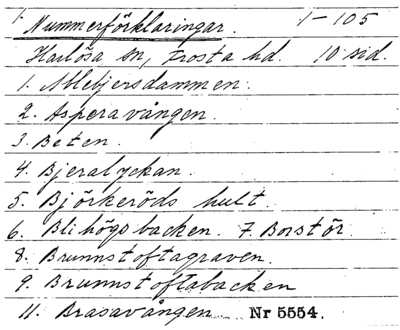 1.
Nummerförklaringar. 1-105
Harlösa sn, Frosta hd. 10 sid.
1. Ablebjersdammen.
2. Asperavången.
3. Beten.
4. Bjeralyckan.
5. Björkeröds hult.
6. Blihögsbacken. 7. Borstör
8. Brunnstoftagraven.
9. Brunnstoftabacken
11. Brasavången Nr 5554.